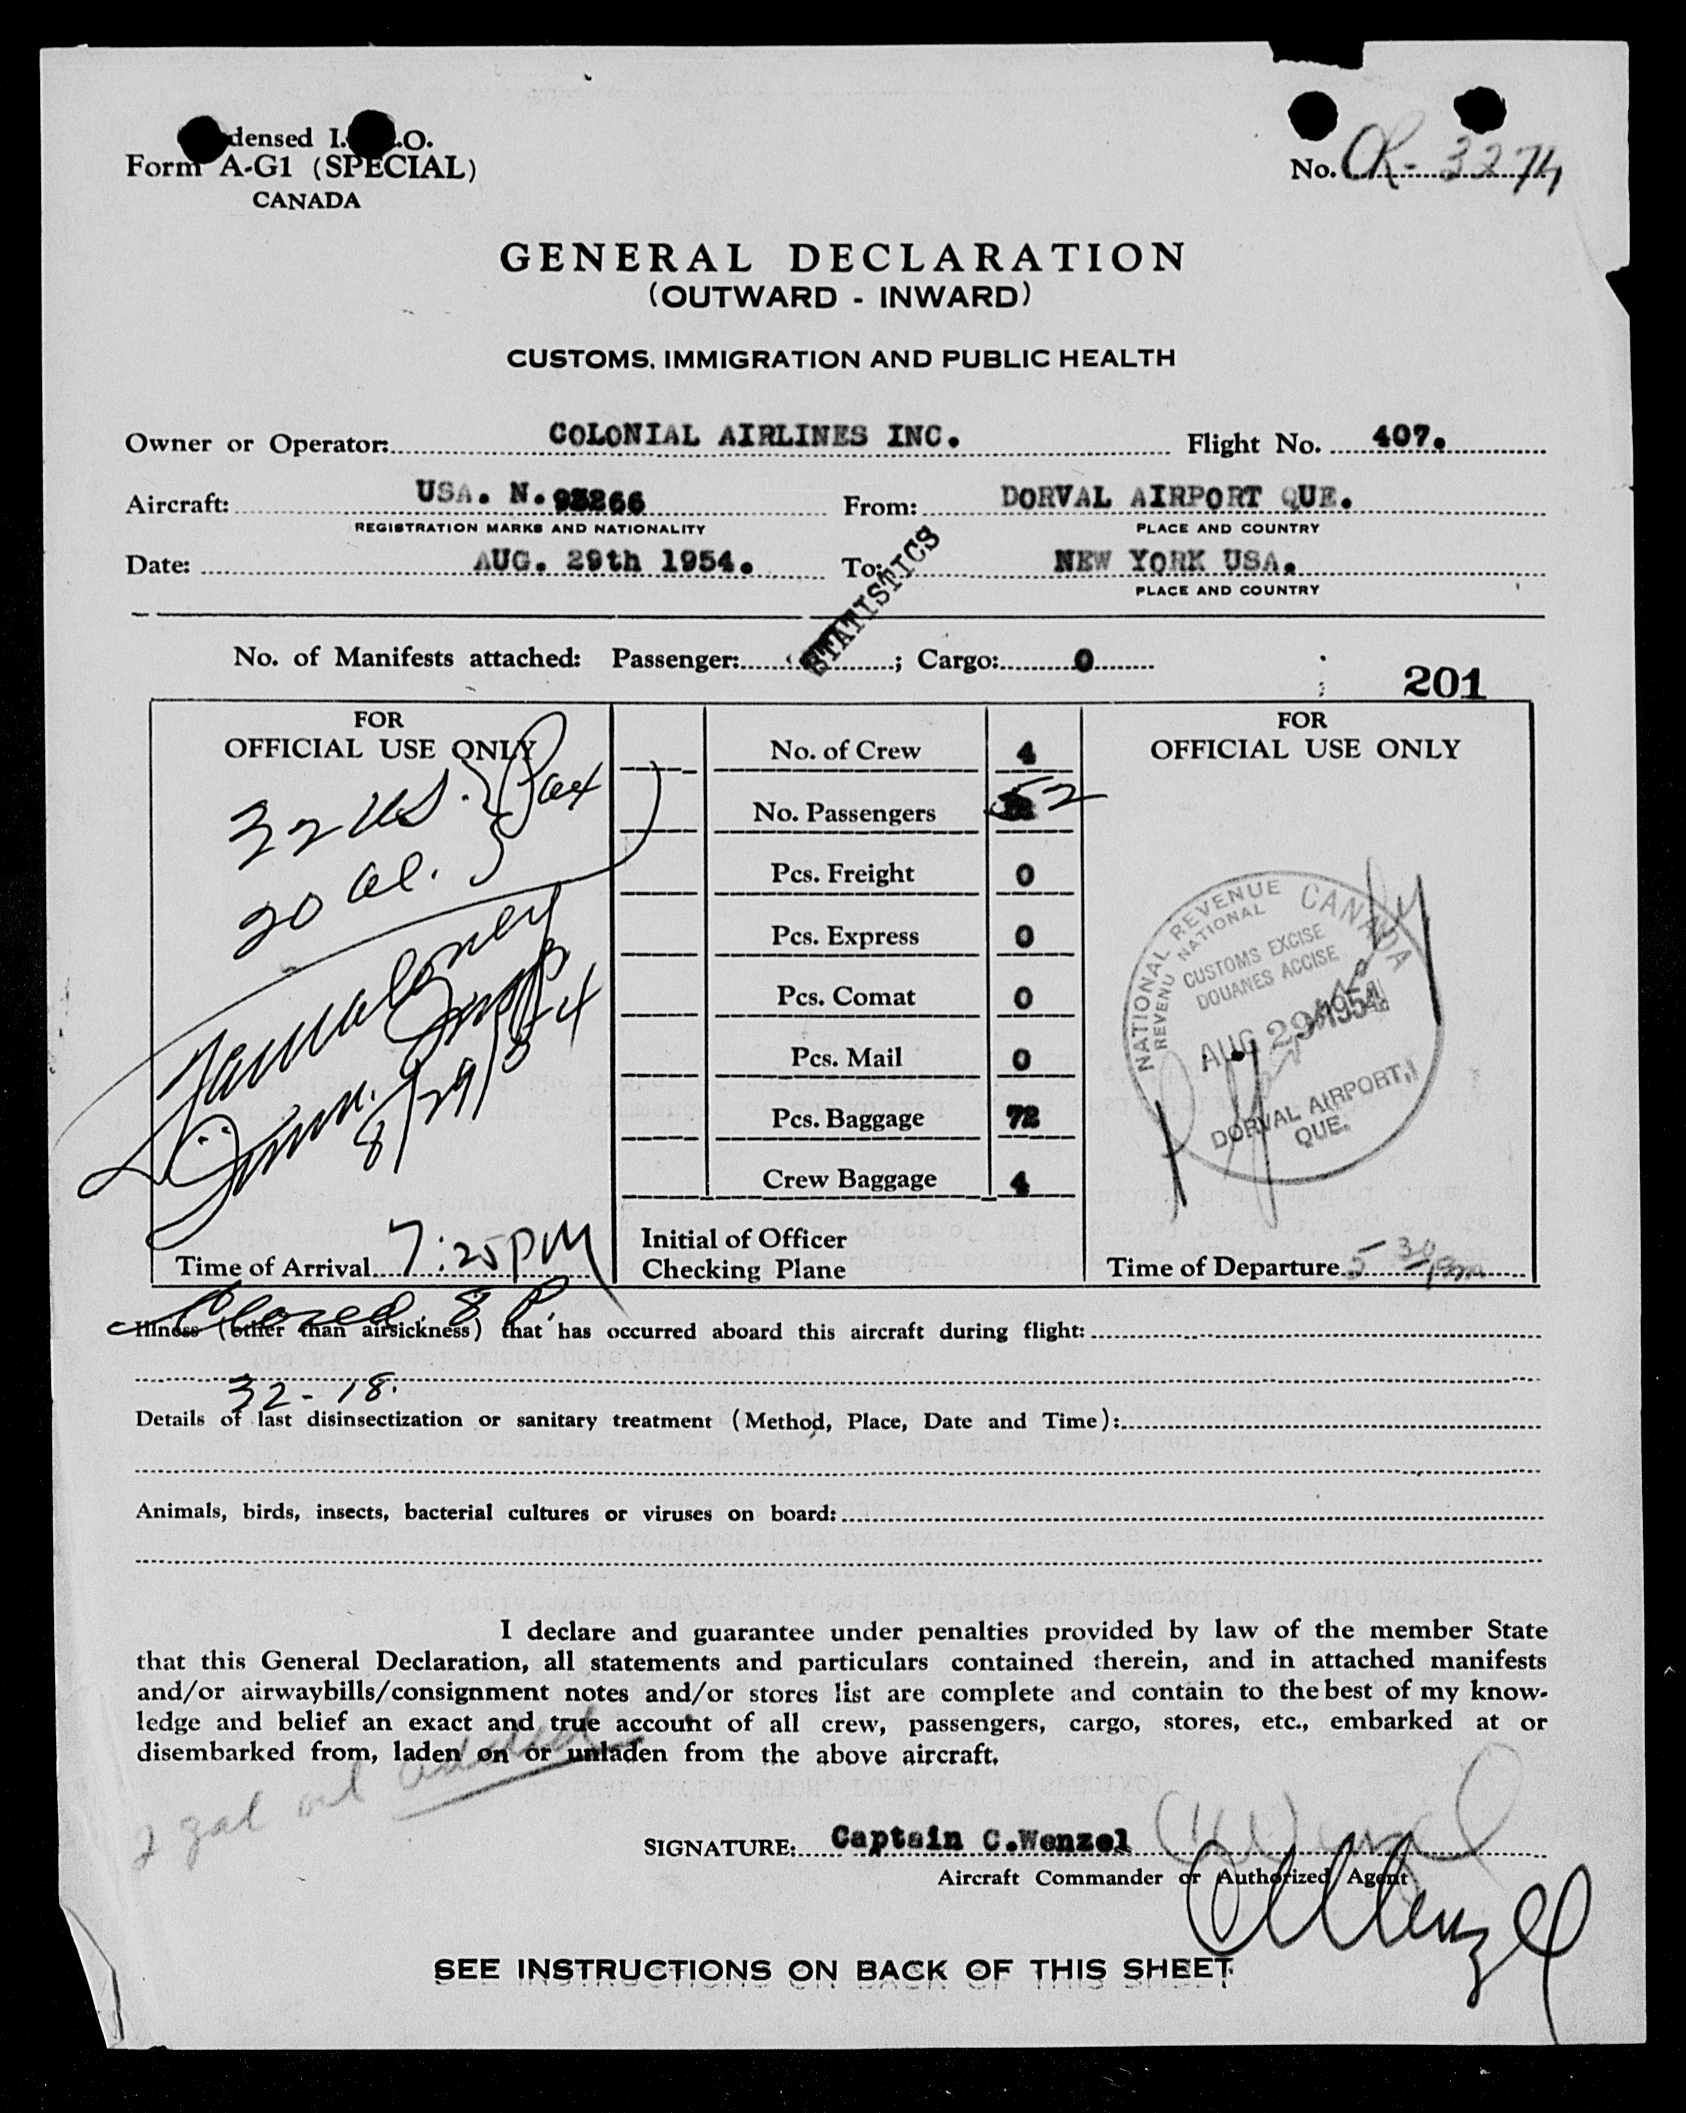 densed I. .O.
Form A-G1 (SPECIAL)
CANADA
No. CR-3274
GENERAL DECLARATION
(OUTWARD - INWARD)
CUSTOMS, IMMIGRATION AND PUBLIC HEALTH
Owner or Operator: COLONIAL AIRLINES INC. Flight No. 407.
Aircraft: USA. N. 93266 From: DORVAL AIRPORT QUE.
REGISTRATION MARKS AND NATIONALITY PLACE AND COUNTRY
Date: AUG. 29th 1954. To: NEW YORK USA.
PLACE AND COUNTRY
STATISTICS
No. of Manifests attached: Passenger: ; Cargo: 0
201
FOR
OFFICIAL USE ONLY
32 US. } Pax
20 al.
Imm.
8/29/54
Time of Arrival 7:25 PM
No. of Crew 4
No. Passengers 52
Pcs. Freight 0
Pcs. Express 0
Pcs. Comat 0
Pcs. Mail 0
Pcs. Baggage 72
Crew Baggage 4
Initial of Officer
Checking Plane
FOR
OFFICIAL USE ONLY
NATIONAL REVENUE CANADA
REVENU NATIONAL
CUSTOMS EXCISE
DOUANES ACCISE
AUG 29 1954
DORVAL AIRPORT,
QUE.
Time of Departure 5 30 pm
Closed 8 P.
Illness (other than airsickness) that has occurred aboard this aircraft during flight:
32 - 18.
Details of last disinsectization or sanitary treatment (Method, Place, Date and Time):
Animals, birds, insects, bacterial cultures or viruses on board:
I declare and guarantee under penalties provided by law of the member State
that this General Declaration, all statements and particulars contained therein, and in attached manifests
and/or airwaybills/consignment notes and/or stores list are complete and contain to the best of my know-
ledge and belief an exact and true account of all crew, passengers, cargo, stores, etc., embarked at or
disembarked from, laden on or unladen from the above aircraft.
2 gal oil added
SIGNATURE: Captain C.Wenzel CWenzel
Aircraft Commander or Authorized Agent
CWenzel
SEE INSTRUCTIONS ON BACK OF THIS SHEET